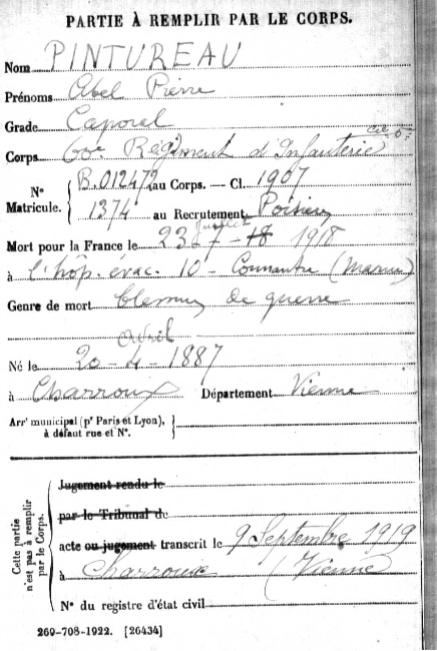 PARTIE À REMPLIR PAR LE CORPS.
Nom PINTUREAU
Prénoms Abel Pierre
Grade Caporal
Corps 60e Régiment d'Infanterie cie 5
N° Matricule. { B.012472 au Corps. — Cl. 1907
1374 au Recrutement Poitiers
juillet
Mort pour la France le 23-7-18 1918
à l'hôp. évac. 10 - Connantre (Marne)
Genre de mort blessures de guerre
avril
Né le 20-4-1887
à Charroux Département Vienne
Arr' municipal (p' Paris et Lyon), }
à défaut rue et N°.
Cette partie n'est pas à remplir par le Corps.
Jugement rendu le
par le Tribunal de
acte ou jugement transcrit le 9 Septembre 1919
à Charroux (Vienne)
N° du registre d'état civil
269-708-1922. [26434]